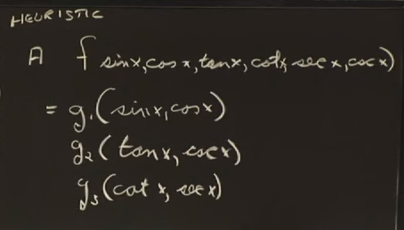 HEURISTIC
A f sinx, cos x, tanx, cotx, sec x, csc x)
= g₁(sinx, cosx)
g₂(tanx, cscx)
g₃(cot x, secx)